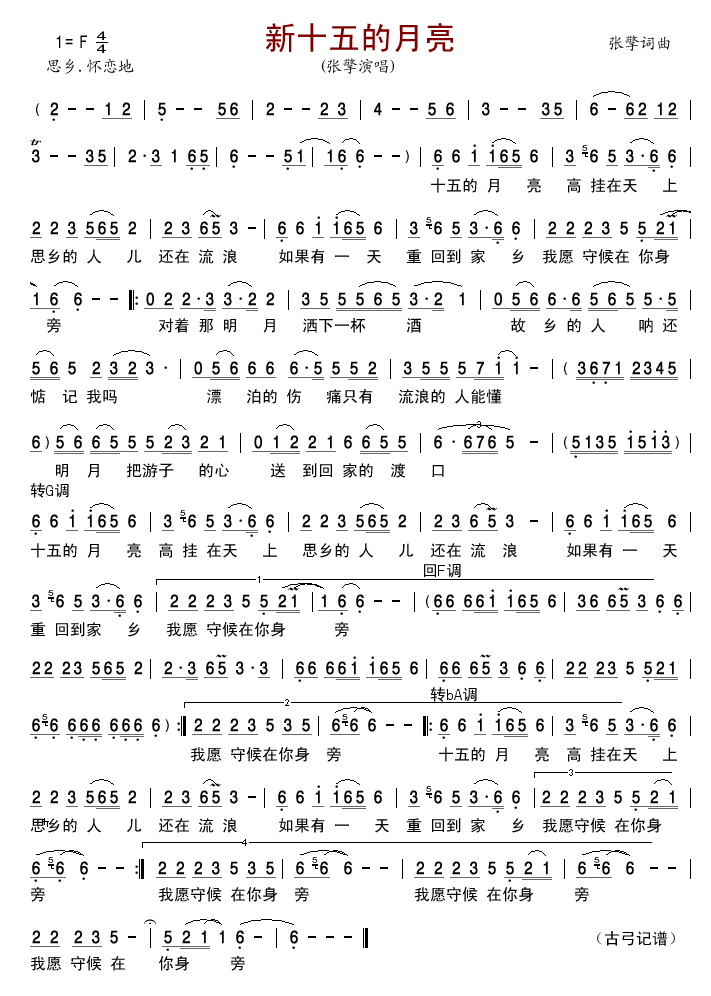 新十五的月亮
1= F 4/4
张擎词曲
思乡.怀恋地
(张擎演唱)
( 2 - - 1 2 | 5 - - 5 6 | 2 - - 2 3 | 4 - - 5 6 | 3 - - 3 5 | 6 - 6 2 1 2 |
3 - - 3 5 | 2 · 3 1 6 5 | 6 - - 5 1 | 1 6 6 - - ) | 6 6 i i 6 5 6 | 3 5 6 5 3 · 6 6 |
十五的 月 亮 高 挂在天 上
2 2 3 5 6 5 2 | 2 3 6 5 3 - | 6 6 i i 6 5 6 | 3 5 6 5 3 · 6 6 | 2 2 2 3 5 5 2 1 |
思乡的 人 儿 还在 流 浪 如果有 一 天 重 回到 家 乡 我愿 守候在 你身
1 6 6 - - |: 0 2 2 · 3 3 · 2 2 | 3 5 5 5 6 5 3 · 2 1 | 0 5 6 6 · 6 5 6 5 5 · 5 |
旁 对着 那 明 月 洒下一杯 酒 故 乡 的 人 呐 还
5 6 5 2 3 2 3 · | 0 5 6 6 6 6 · 5 5 5 2 | 3 5 5 5 7 i i - | ( 3 6 7 1 2 3 4 5 |
惦 记 我吗 漂 泊的 伤 痛只有 流浪的 人能懂
6 ) 5 6 6 5 5 5 2 3 2 1 | 0 1 2 2 1 6 6 5 5 | 6 · 6 7 6 5 - | ( 5 1 3 5 i 5 i 3 ) |
明 月 把游子 的心 送 到回 家的 渡 口
转G调
6 6 i i 6 5 6 | 3 5 6 5 3 · 6 6 | 2 2 3 5 6 5 2 | 2 3 6 5 3 - | 6 6 i i 6 5 6 |
十五的 月 亮 高 挂 在天 上 思乡的 人 儿 还在 流 浪 如果有 一 天
1 回F调
3 5 6 5 3 · 6 6 | 2 2 2 3 5 5 2 1 | 1 6 6 - - | ( 6 6 6 6 i i 6 5 6 | 3 6 6 5 3 6 6 |
重 回到家 乡 我愿 守候在你身 旁
2 2 2 3 5 6 5 2 | 2 · 3 6 5 3 · 3 | 6 6 6 6 i i 6 5 6 | 6 6 6 5 3 6 6 | 2 2 2 3 5 5 2 1 |
2 转bA调
6 5 6 6 6 6 6 6 6 6 ) :| 2 2 2 3 5 3 5 | 6 5 6 6 - - |: 6 6 i i 6 5 6 | 3 5 6 5 3 · 6 6 |
我愿 守候在你身 旁 十五的 月 亮 高 挂在天 上
3
2 2 3 5 6 5 2 | 2 3 6 5 3 - | 6 6 i i 6 5 6 | 3 5 6 5 3 · 6 6 | 2 2 2 3 5 5 2 1 |
思乡的 人 儿 还在 流 浪 如果有 一 天 重 回到 家 乡 我愿守候 在你身
4
6 5 6 6 - - :| 2 2 2 3 5 3 5 | 6 5 6 6 - - | 2 2 2 3 5 5 2 1 | 6 5 6 6 - - |
旁 我愿守候 在你身 旁 我愿守候 在你身 旁
2 2 2 3 5 - | 5 2 1 1 6 - | 6 - - - ||
（古弓记谱）
我愿 守候 在 你身 旁